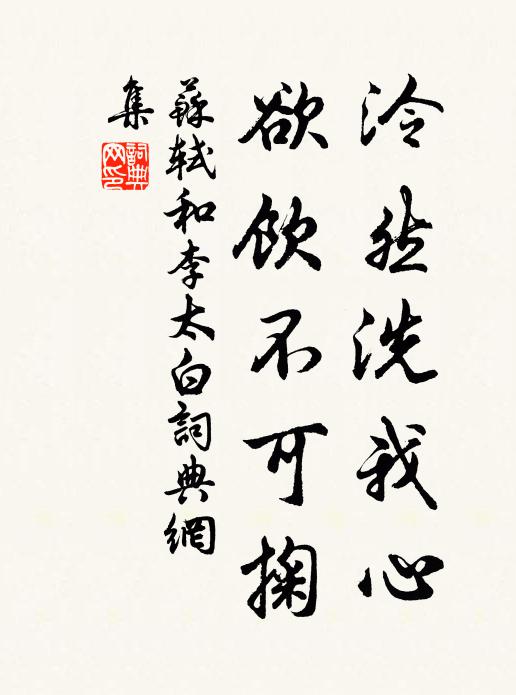 泠然洗我心
欲飲不可掬
蘇軾和李太白詞典網
集
詞典網印